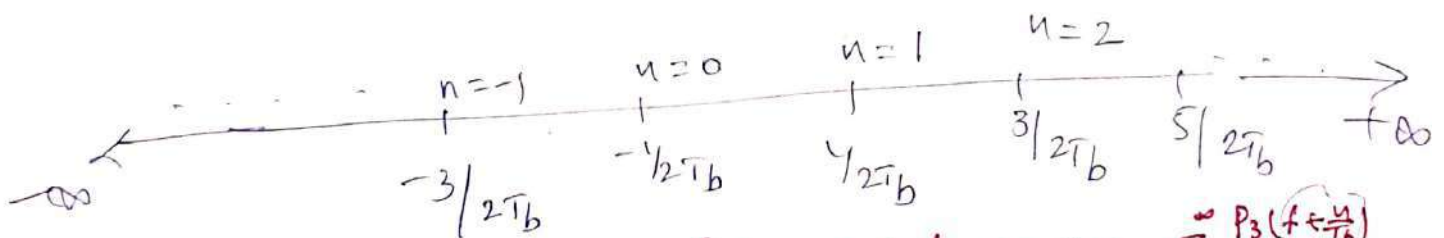 n=-1 n=0 n=1 n=2
-∞ -3/2Tb -1/2Tb 1/2Tb 3/2Tb 5/2Tb +∞
∞ P3(f+n/Tb)